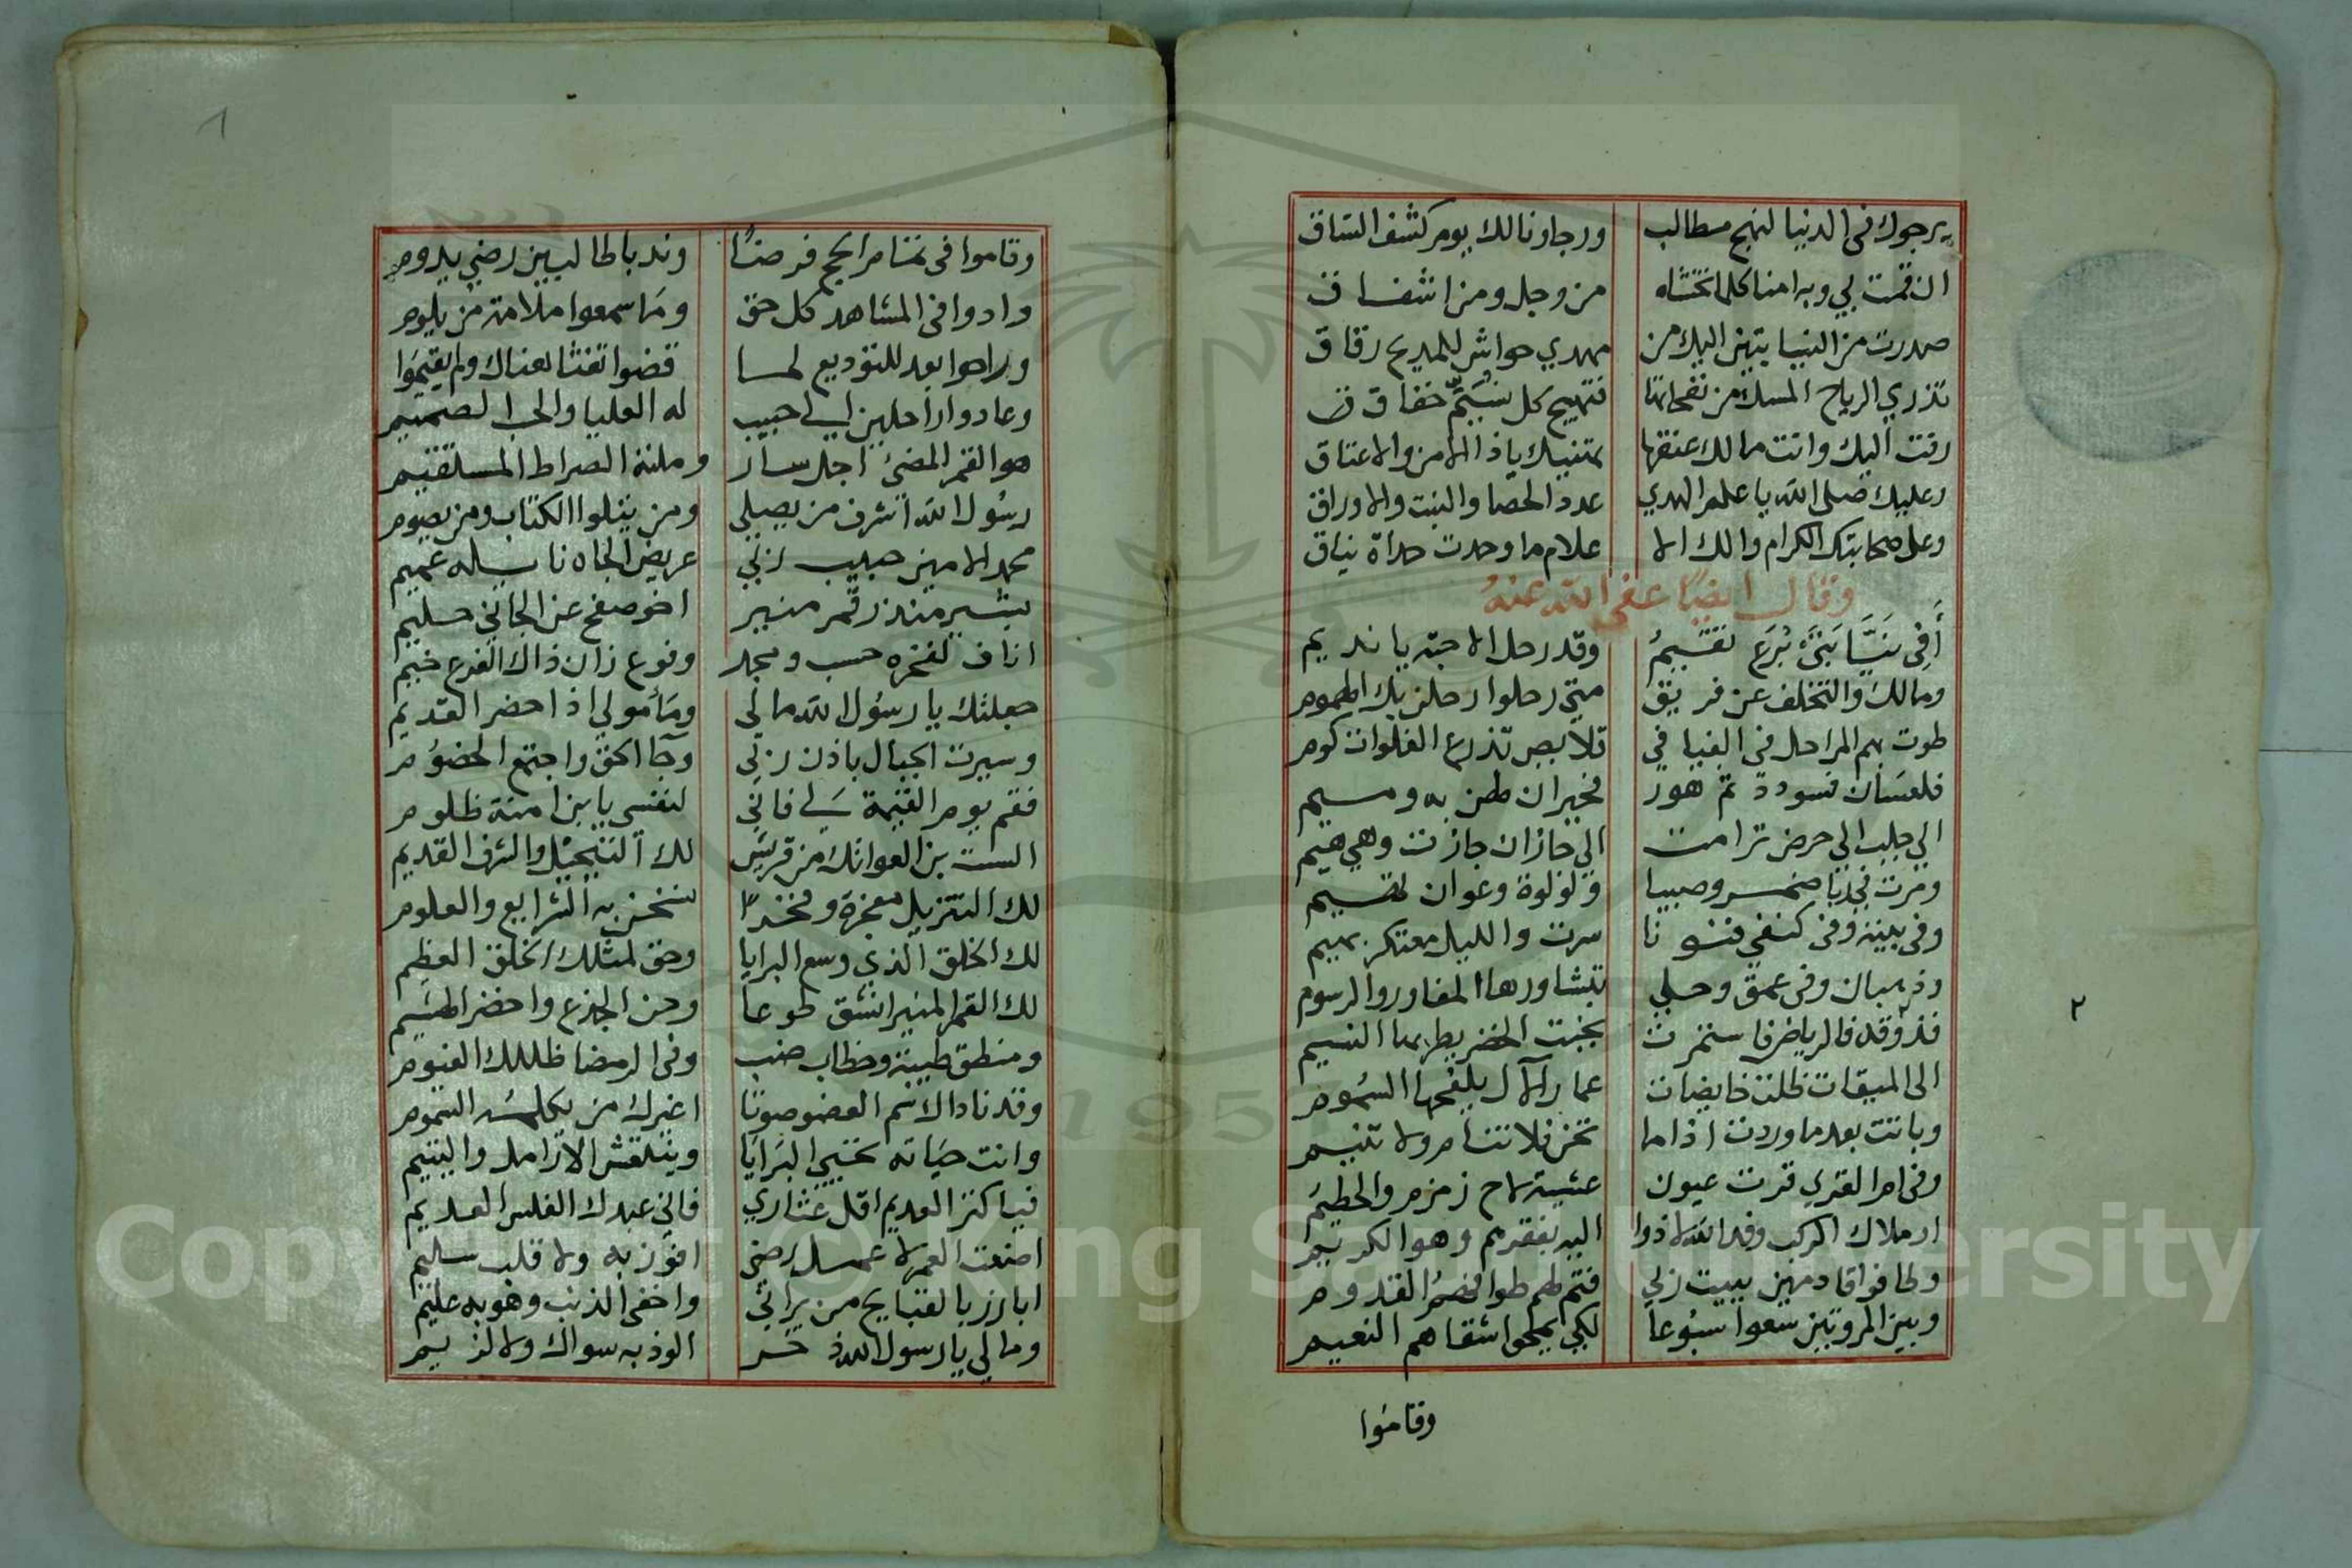 يرجوك في الدنيا لنهج مطالب ورجاونا لك يوم كشف الساق
ان قمت بي وبه امنا كلما نخشاه من وجل ومن اشفاق
صدرت من النيابتين اليك من مهدي حواشي للمديح رقاق
تذري الرياح المسك من نفحاتها فتهيج كل متيم خفاق
زفت اليك وانت مالك عتقها بمتنيك ياذا الامن والاعتاق
وعليك صلى الله يا علم الهدي عدد الحصا والنبت والاوراق
وعلى صحابتك الكرام والك الا علام ما وحدت حداة نياق
وقال ايضا عفى الله عنه
أفي نيابتي برع تقيم وقد رحل الاحبة يا نديم
ومالك والتخلف عن فريق متي رحلوا رحلن بك الهموم
طوت بهم المراحل في الفيافي قلايص تذرع الفلوات كوم
فلعسان فسودد ثم هور فخيران طمن به ومسيم
الي جلب الي حرض ترامت الي جازان جازت وهي هيم
ومرت في ضمر وصبيا ولولوة وعوان لهيم
وفي بيته وفي كنفي قنونا سرت والليل معتكر بهيم
وذهبان وفي عمق وحلي تشاورها المفاوز والرسوم
الى الميقات ظلت خايضات غمار الآل يلفحها السموم
وباتت بعد ما وردت اذاما تحن فلا تنام ولا تنيم
وفي ام القري قرت عيون عشية لاح زمزم والحطيم
املاك الركب وفد الله لاذوا اليه بفقرهم وهو الكريم
وطافوا قادمين ببيت زبي فتم لهم طوافهم القدوم
وبين المروتين سعوا سبوعا لكي يمحوا شقاهم النعيم
وقاموا
٢
وقاموا في تمام الحج فرضا وندبا طالبين رضي يدوم
وادوا في المشاهد كل حق وما سمعوا ملامة من يلوم
وراحوا بعد للتوديع لما قضوا تفثا هناك ولم يقيموا
وعادوا راحلين الي حبيب له العليا والحب الصميم
هو القمر المضئ اجل سار وملته الصراط المستقيم
رسول الله اشرف من يصلي ومن يتلوا الكتاب ومن يصوم
محمد الامين حبيب زبي عريض الجاه نايله عميم
بشير منذر قمر منير اخو صفح عن الجاني حليم
اناف لفخره حسب ومجد وفرع زان ذاك الفرع خيم
جعلتك يا رسول الله مالي ومأمولي اذا حضر الغديم
وسيرت الجبال باذن زبي وجا الحق واجتمع الخضوم
فقم يوم القيمة لي فاني لنفسي يا بن امنة ظلوم
الست بن العواتك من قريش لك التبجيل والشرف القديم
لك التنزيل معجزة وفخرا لتنسخ به الشرايع والعلوم
لك الخلق الذي وسع البرايا وحق لمثلك الخلق العظيم
لك القمر المنير انشق طوعا وحن الجذع واخضر الهشيم
ومنطق ظبية وخطاب ضب وفي الرمضا ظللك الغيوم
وقد نادا لاسم العضو صوتا اغيرك من يكلمه السموم
وانت حياته تحيي البرايا وينتعش الارامل واليتيم
فيا كنز العديم اقل عثاري فاني عبدك الفلس العديم
اضعت العمر لا عمل رضي افوز به ولا قلب سليم
ابارز بالقبايح من يراني واخفي الذنب وهو به عليم
ومالي يا رسول الله ذخر الوذ به سواك ولا لزيم
1
Copyright © King Saud University
1957